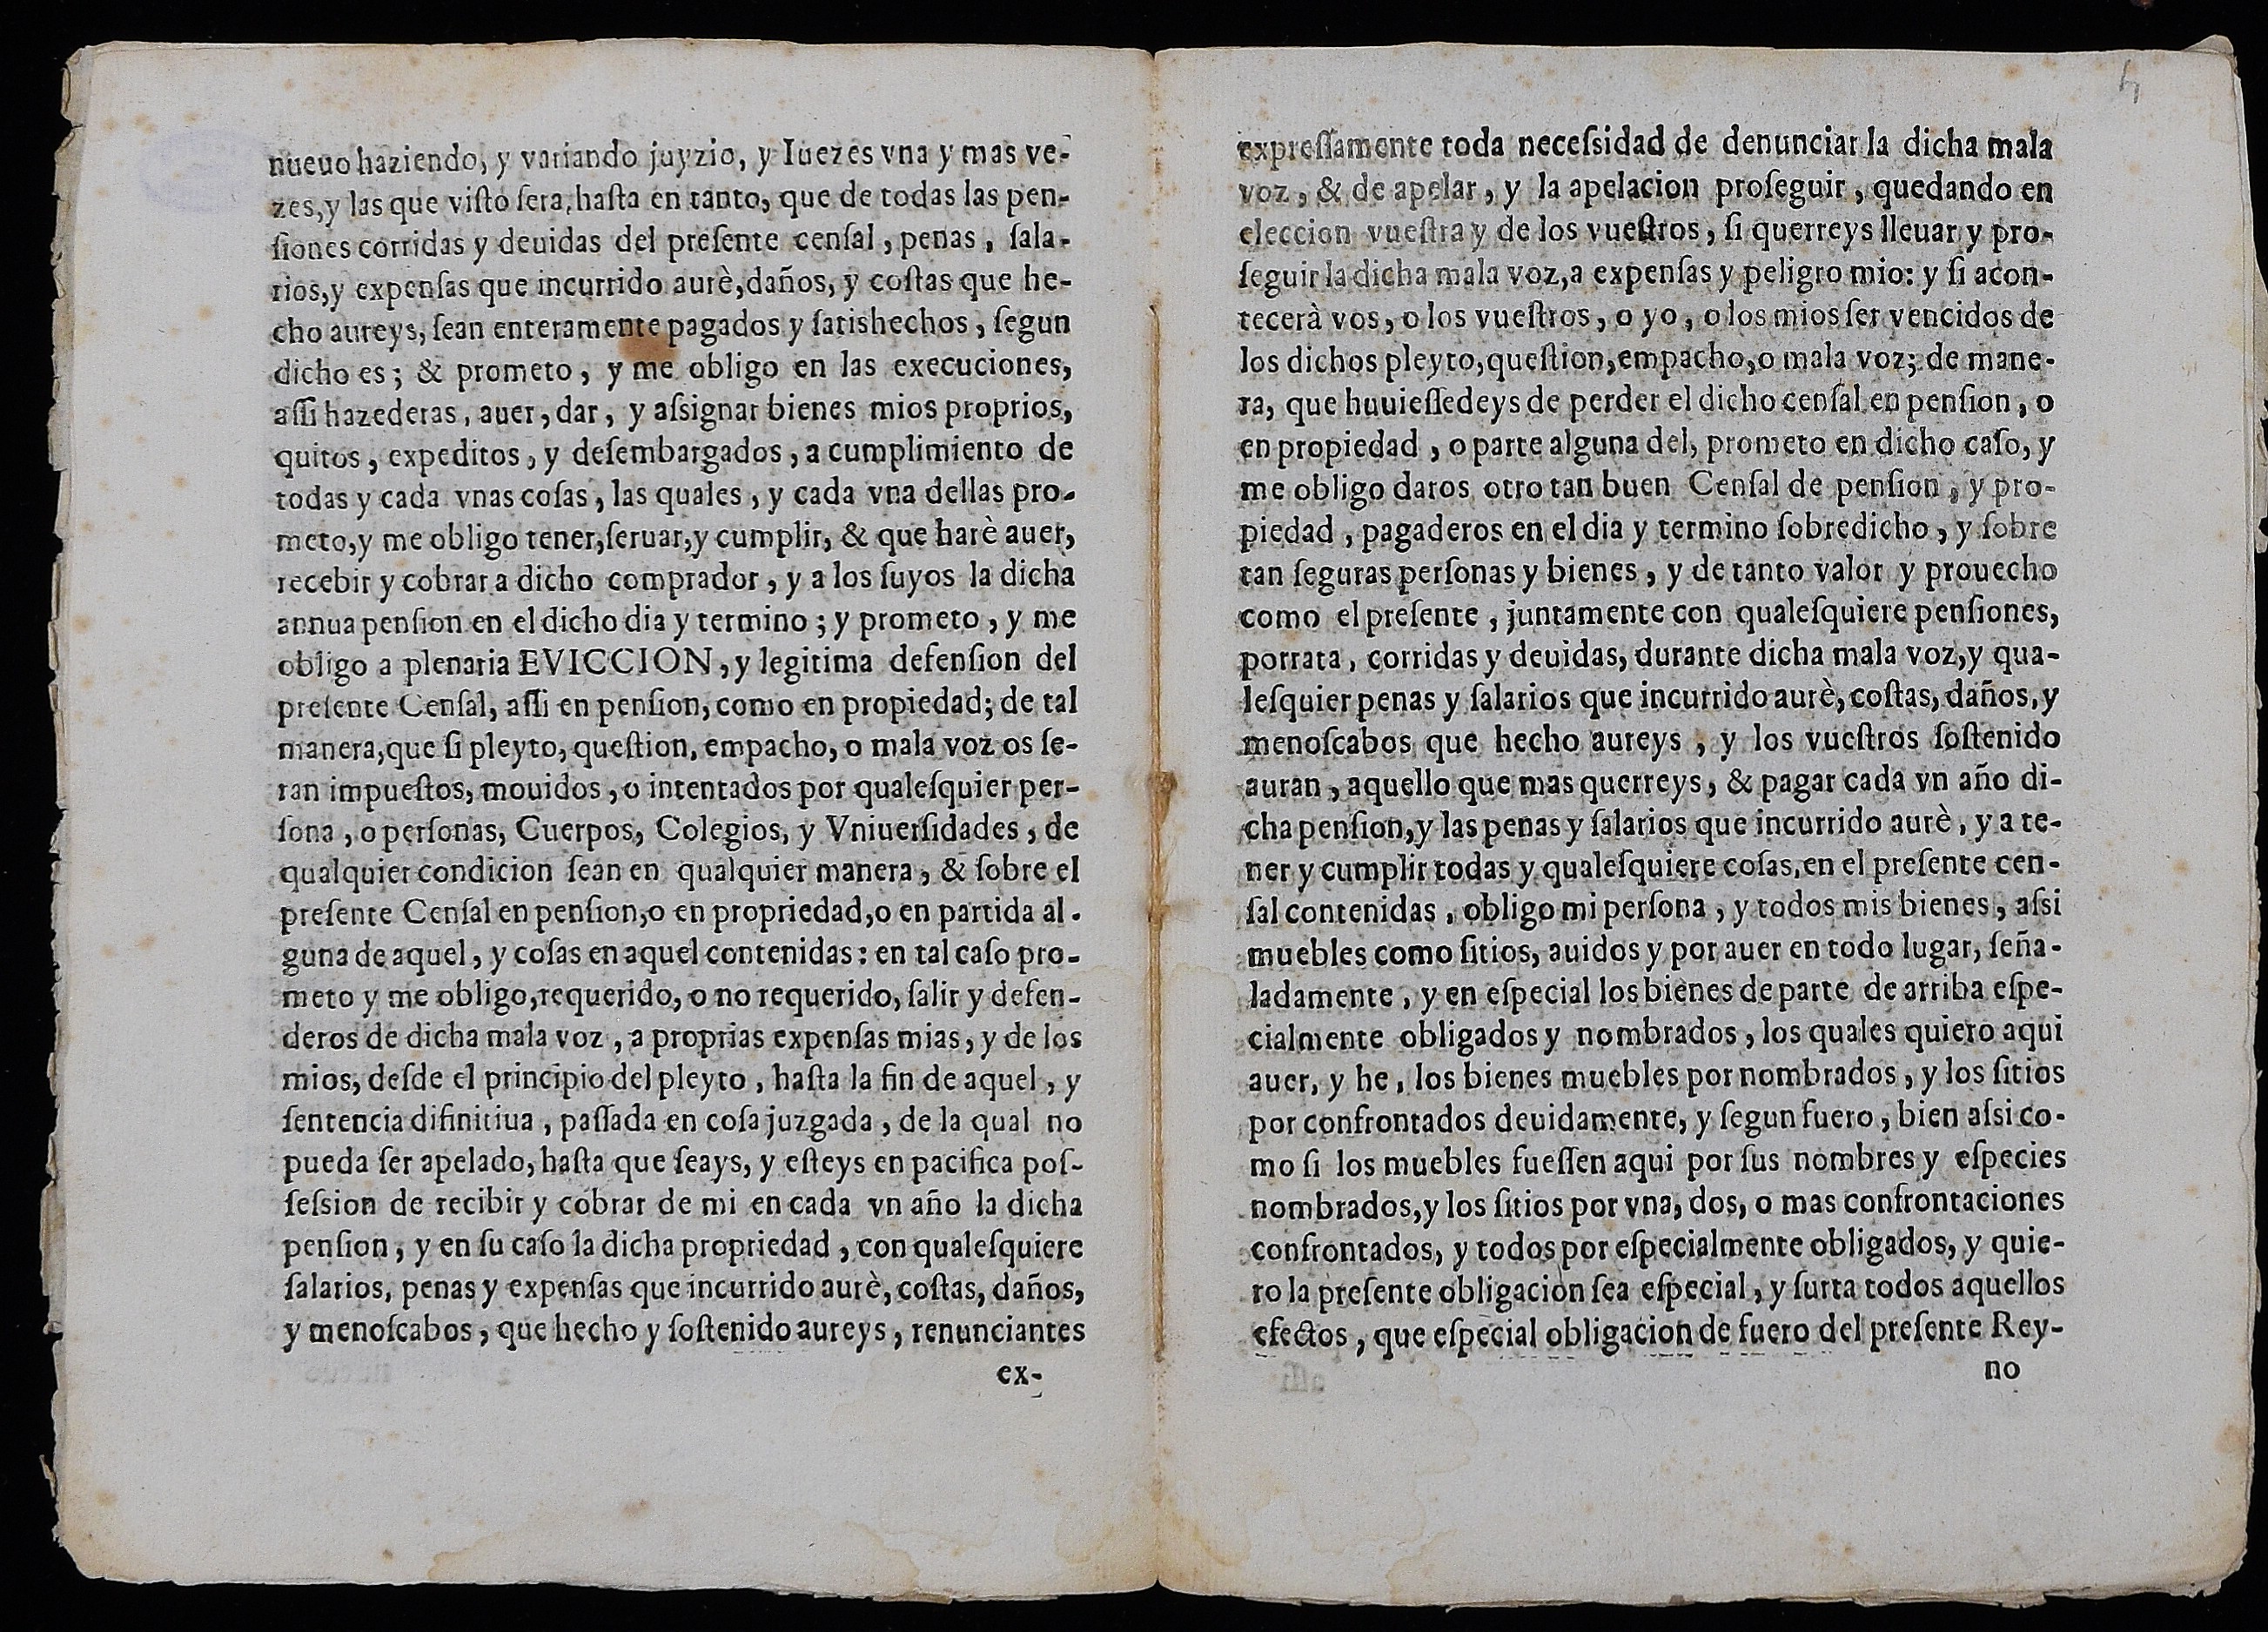 nueuo haziendo, y variando juyzio, y Iuezes vna y mas ve-
zes, y las que visto sera, hasta en tanto, que de todas las pen-
siones corridas y deuidas del presente censal, penas, sala-
rios, y expensas que incurrido aurè, daños, y costas que he-
cho aureys, sean enteramente pagados y satishechos, segun
dicho es; & prometo, y me obligo en las execuciones,
assi hazederas, auer, dar, y assignar bienes mios proprios,
quitos, expeditos, y desembargados, a cumplimiento de
todas y cada vnas cosas, las quales, y cada vna dellas pro-
meto, y me obligo tener, seruar, y cumplir, & que harè auer,
recebir y cobrar a dicho comprador, y a los suyos la dicha
annua pension en el dicho dia y termino; y prometo, y me
obligo a plenaria EVICCION, y legitima defension del
presente Censal, assi en pension, como en propiedad; de tal
manera, que si pleyto, question, empacho, o mala voz os se-
ran impuestos, mouidos, o intentados por qualesquier per-
sona, o personas, Cuerpos, Colegios, y Vniuersidades, de
qualquier condicion sean en qualquier manera, & sobre el
presente Censal en pension, o en propriedad, o en partida al-
guna de aquel, y cosas en aquel contenidas: en tal caso pro-
meto y me obligo, requerido, o no requerido, salir y defen-
deros de dicha mala voz, a proprias expensas mias, y de los
mios, desde el principio del pleyto, hasta la fin de aquel, y
sentencia difinitiua, passada en cosa juzgada, de la qual no
pueda ser apelado, hasta que seays, y esteys en pacifica pos-
session de recibir y cobrar de mi en cada vn año la dicha
pension, y en su caso la dicha propriedad, con qualesquiere
salarios, penas y expensas que incurrido aurè, costas, daños,
y menoscabos, que hecho y sostenido aureys, renunciantes
ex-
4
expressamente toda necessidad de denunciar la dicha mala
voz, & de apelar, y la apelacion proseguir, quedando en
eleccion vuestra y de los vuestros, si querreys lleuar y pro-
seguir la dicha mala voz, a expensas y peligro mio: y si acon-
tecerà vos, o los vuestros, o yo, o los mios ser vencidos de
los dichos pleyto, question, empacho, o mala voz; de mane-
ra, que huuiessedeys de perder el dicho censal en pension, o
en propiedad, o parte alguna del, prometo en dicho caso, y
me obligo daros otro tan buen Censal de pension, y pro-
piedad, pagaderos en el dia y termino sobredicho, y sobre
tan seguras personas y bienes, y de tanto valor y prouecho
como el presente, juntamente con qualesquiere pensiones,
porrata, corridas y deuidas, durante dicha mala voz, y qua-
lesquier penas y salarios que incurrido aurè, costas, daños, y
menoscabos que hecho aureys, y los vuestros sostenido
auran, aquello que mas querreys, & pagar cada vn año di-
cha pension, y las penas y salarios que incurrido aurè, y a te-
ner y cumplir todas y qualesquiere cosas, en el presente cen-
sal contenidas, obligo mi persona, y todos mis bienes, assi
muebles como sitios, auidos y por auer en todo lugar, seña-
ladamente, y en especial los bienes de parte de arriba espe-
cialmente obligados y nombrados, los quales quiero aqui
auer, y he, los bienes muebles por nombrados, y los sitios
por confrontados deuidamente, y segun fuero, bien assi co-
mo si los muebles fuessen aqui por sus nombres y especies
nombrados, y los sitios por vna, dos, o mas confrontaciones
confrontados, y todos por especialmente obligados, y quie-
ro la presente obligacion sea especial, y surta todos aquellos
efectos, que especial obligacion de fuero del presente Rey-
no